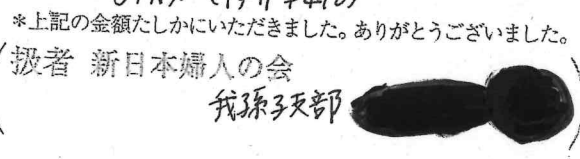 *上記の金額たしかにいただきました。ありがとうございました。
扱者 新日本婦人の会
我孫子支部